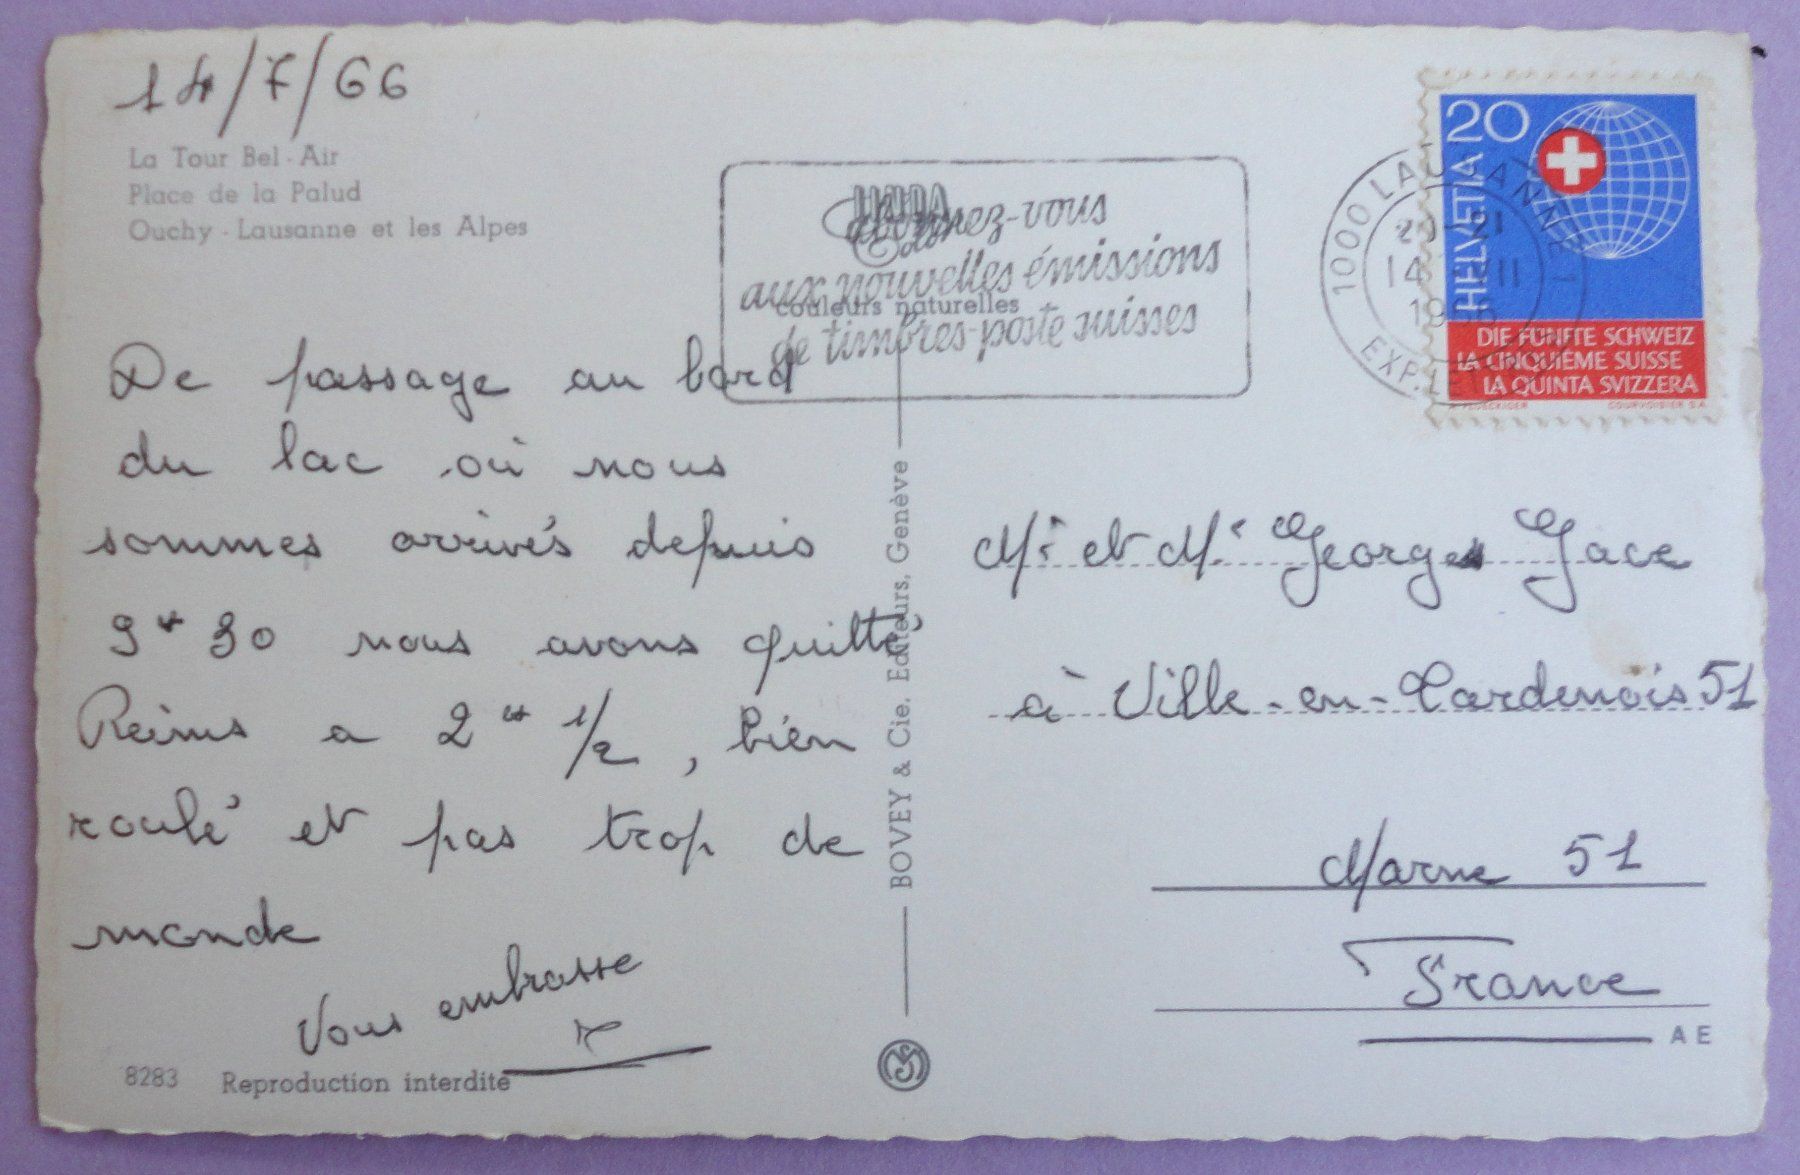 14/7/66
La Tour Bel-Air
Place de la Palud
Ouchy - Lausanne et les Alpes
abonnez-vous
aux nouvelles émissions
de timbres-poste suisses
couleurs naturelles
1000 LAUSANNE 1
EXP. LET
20-21
14 VII
1966
20
HELVETIA
DIE FÜNFTE SCHWEIZ
LA CINQUIÈME SUISSE
LA QUINTA SVIZZERA
COURVOISIER S.A.
De passage au bord
du lac où nous
sommes arrivés depuis
9 30 nous avons quitté
Reims a 2 1/2, bien
roulé et pas trop de
monde
Vous embrasse
BOVEY & Cie. Editeurs, Genève
Mr et Me Georges Gace
à Ville-en-Tardenois 51
Marne 51
France
8283 Reproduction interdite
AE